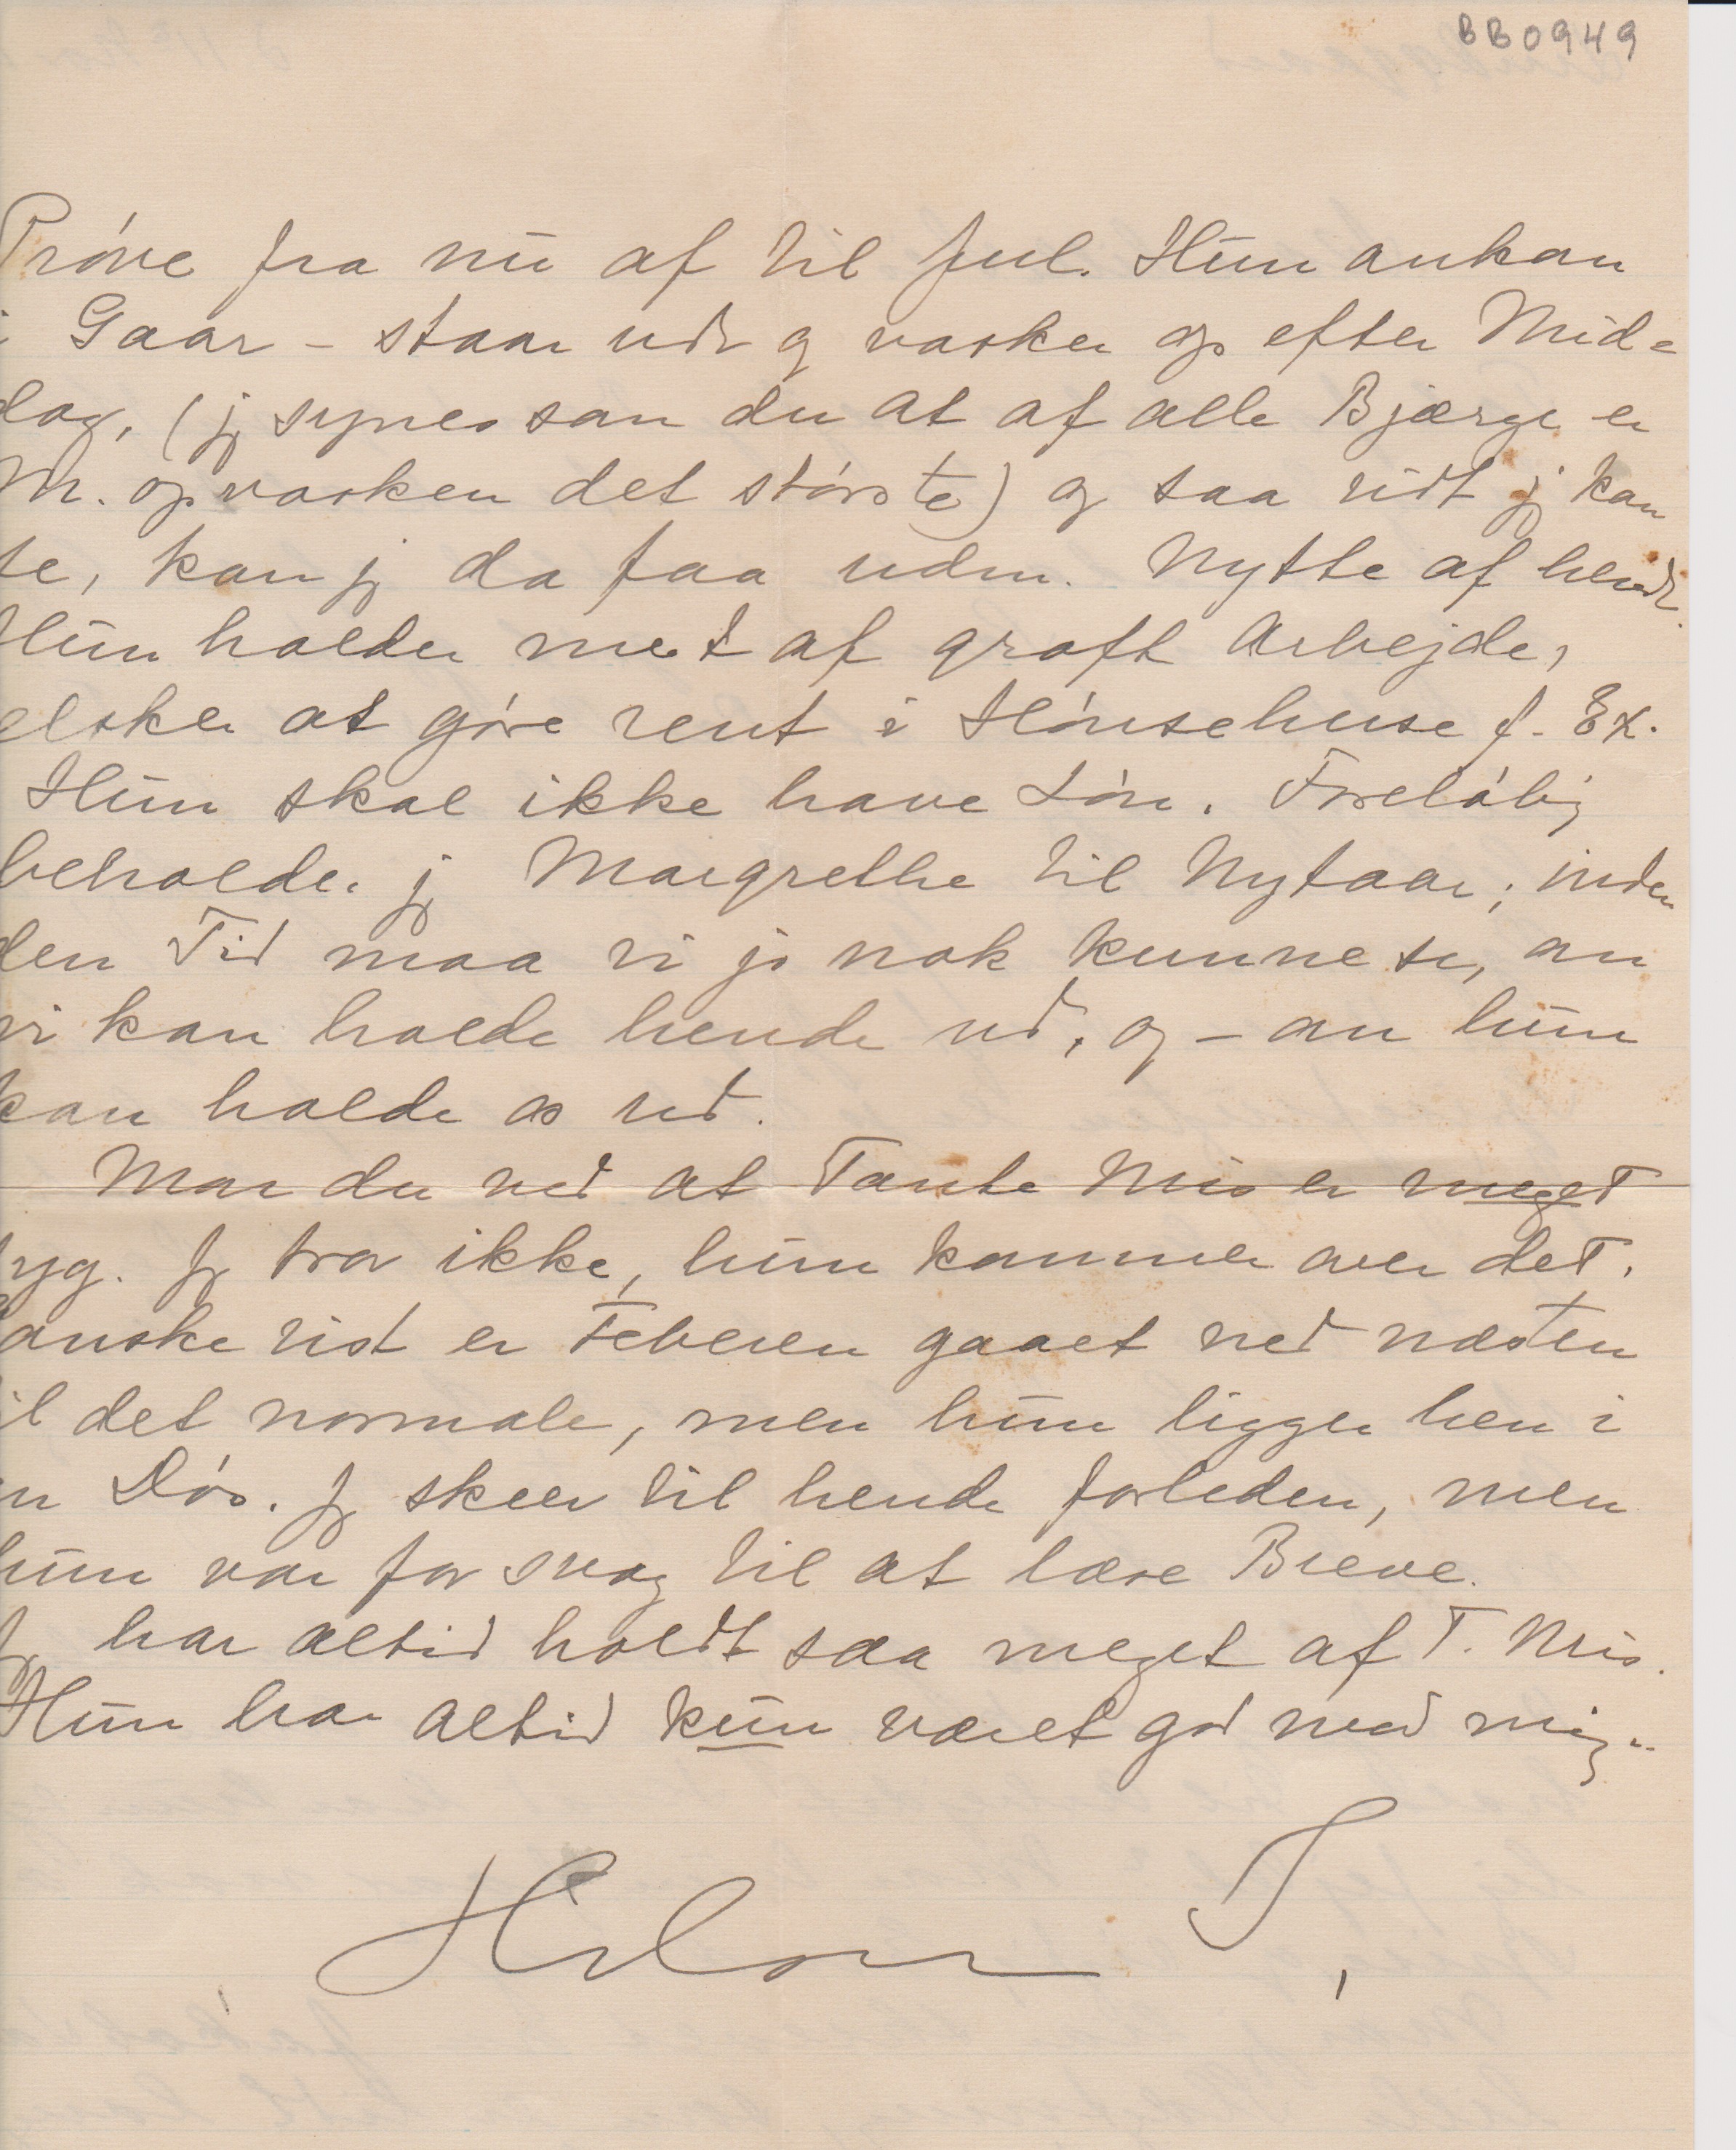 BB0949
Prøve fra nu af til Jul. Hun ankom
i Gaar – staar nu og vasker op efter Mid=
dag, (jg synes som du at af alle Bjærge er
M. opvasken det største) og saa vidt jg kan
se, kan jg da faa udm. Nytte af hende.
Hun holder mest af groft Arbejde,
elsker at gøre rent i Hønsehuse f. Ex.
Hun skal ikke have Løn. Foreløbig
beholder jg Margrethe til Nytaar; inden
den Tid maa vi jo nok kunne se, om
vi kan holde hende ud, og – om hun
kan holde os ud.
Mon du ved at Tante Mis er meget
syg. Jg tror ikke, hun kommer over det.
Ganske vist er Feberen gaaet ned næsten
til det normale, men hun ligger hen i
en Døs. Jg skrev til hende forleden, men
hun var for svag til at læse Breve.
Jg har altid holdt saa meget af T. Mis.
Hun har altid kun været god mod mig..